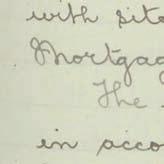 with site
Mortgag
The
in acco